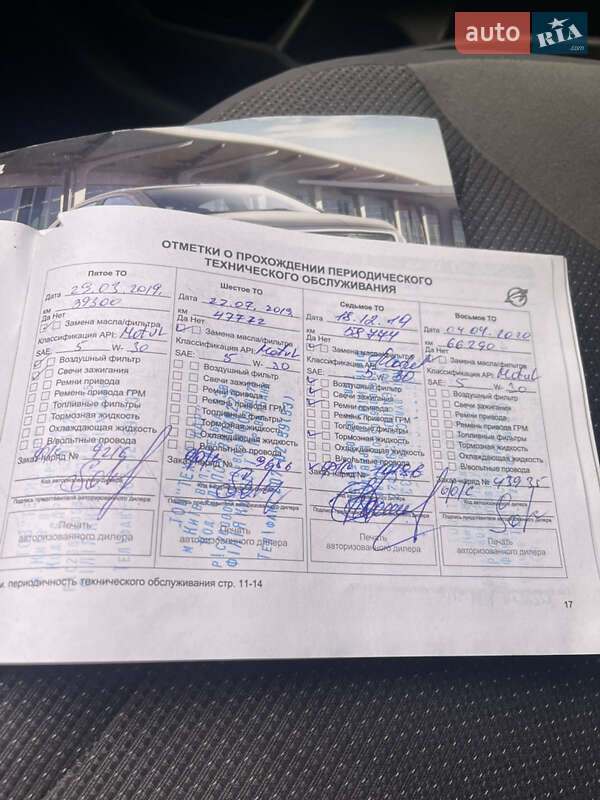 auto RIA .com
ОТМЕТКИ О ПРОХОЖДЕНИИ ПЕРИОДИЧЕСКОГО
ТЕХНИЧЕСКОГО ОБСЛУЖИВАНИЯ
Пятое ТО
Дата 29.03.2019.
км 39300
Да Нет
Замена масла/фильтра
Классификация API: Motul
SAE: 5 W- 30
Воздушный фильтр
Свечи зажигания
Ремни привода
Ремень привода ГРМ
Топливные фильтры
Тормозная жидкость
Охлаждающая жидкость
В/вольтные провода
Заказ-наряд №
Подпись представителя авторизированного дилера
Печать
авторизованного дилера
Шестое ТО
Дата 22.07.2019
км 47772
Да Нет
Замена масла/фильтра
Классификация API: Motul
SAE: 5 W- 30
Воздушный фильтр
Свечи зажигания
Ремни привода
Ремень привода ГРМ
Топливные фильтры
Тормозная жидкость
Охлаждающая жидкость
В/вольтные провода
Заказ-наряд №
Подпись представителя авторизированного дилера
Печать
авторизованного дилера
Седьмое ТО
Дата 18.12.19
км 58744
Да Нет
Замена масла/фильтра
Классификация API:
SAE: 5 W- 30
Воздушный фильтр
Свечи зажигания
Ремни привода
Ремень привода ГРМ
Топливные фильтры
Тормозная жидкость
Охлаждающая жидкость
В/вольтные провода
Заказ-наряд №
Печать
авторизованного дилера
Восьмое ТО
Дата 04.04.2020
км 66290
Да Нет
Замена масла/фильтра
Классификация API: Motul
SAE: 5 W- 30
Воздушный фильтр
Свечи зажигания
Ремни привода
Ремень привода ГРМ
Топливные фильтры
Тормозная жидкость
Охлаждающая жидкость
В/вольтные провода
Заказ-наряд № 43935
Подпись представителя авторизированного дилера
Печать
авторизованного дилера
периодичность технического обслуживания стр. 11-14
17